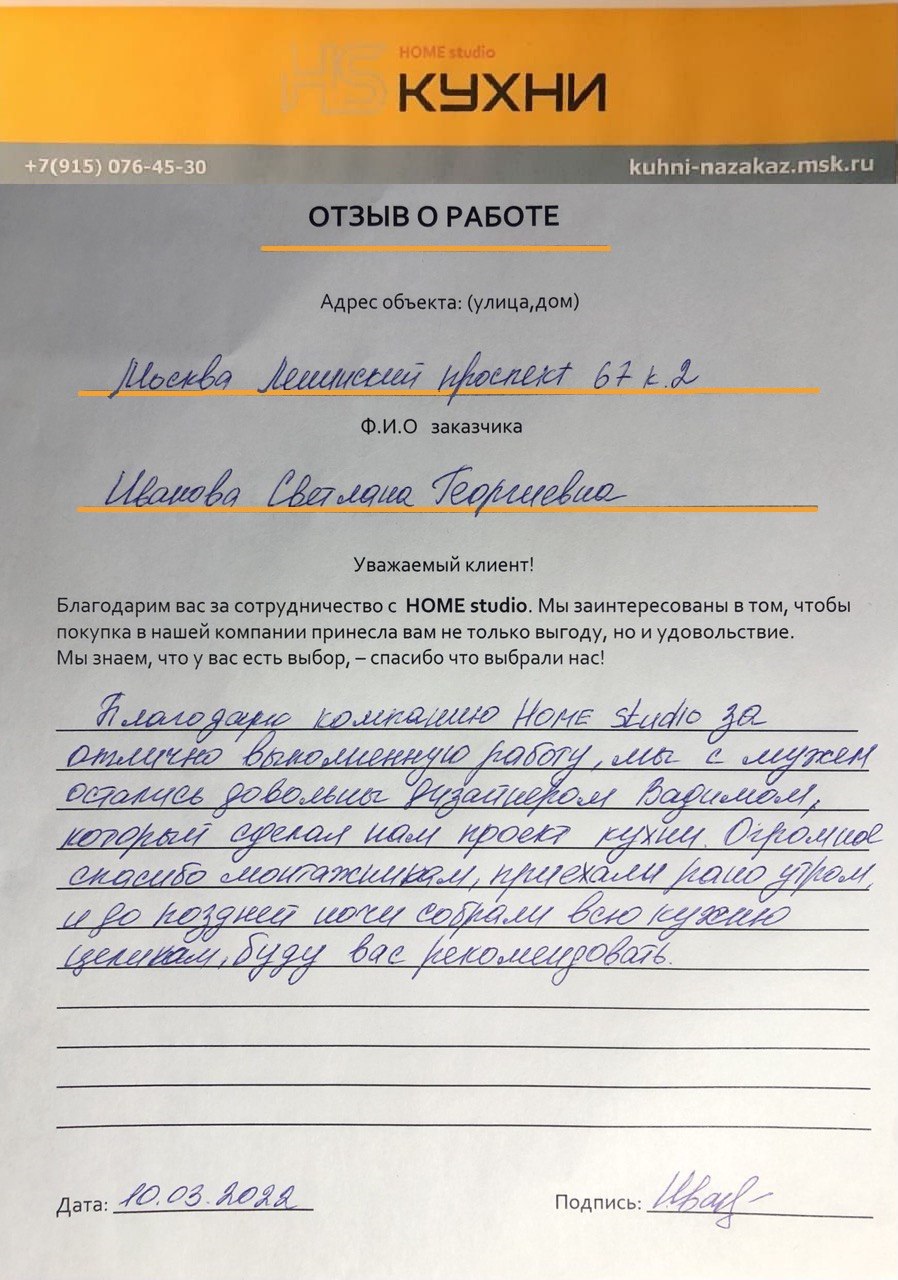 HS
HOME studio
КУХНИ
+7(915) 076-45-30 kuhni-nazakaz.msk.ru
ОТЗЫВ О РАБОТЕ
Адрес объекта: (улица,дом)
Москва Ленинский проспект 67 к.2
Ф.И.О заказчика
Иванова Светлана Георгиевна
Уважаемый клиент!
Благодарим вас за сотрудничество с HOME studio. Мы заинтересованы в том, чтобы
покупка в нашей компании принесла вам не только выгоду, но и удовольствие.
Мы знаем, что у вас есть выбор, – спасибо что выбрали нас!
Благодарю компанию HOME studio за
отлично выполненную работу, мы с мужем
остались довольны Дизайнером Вадимом,
который сделал нам проект кухни. Огромное
спасибо монтажникам, приехали рано утром,
и до поздней ночи собрали всю кухню
целикам, буду вас рекомендовать.
Дата: 10.03.2022 Подпись: Иван